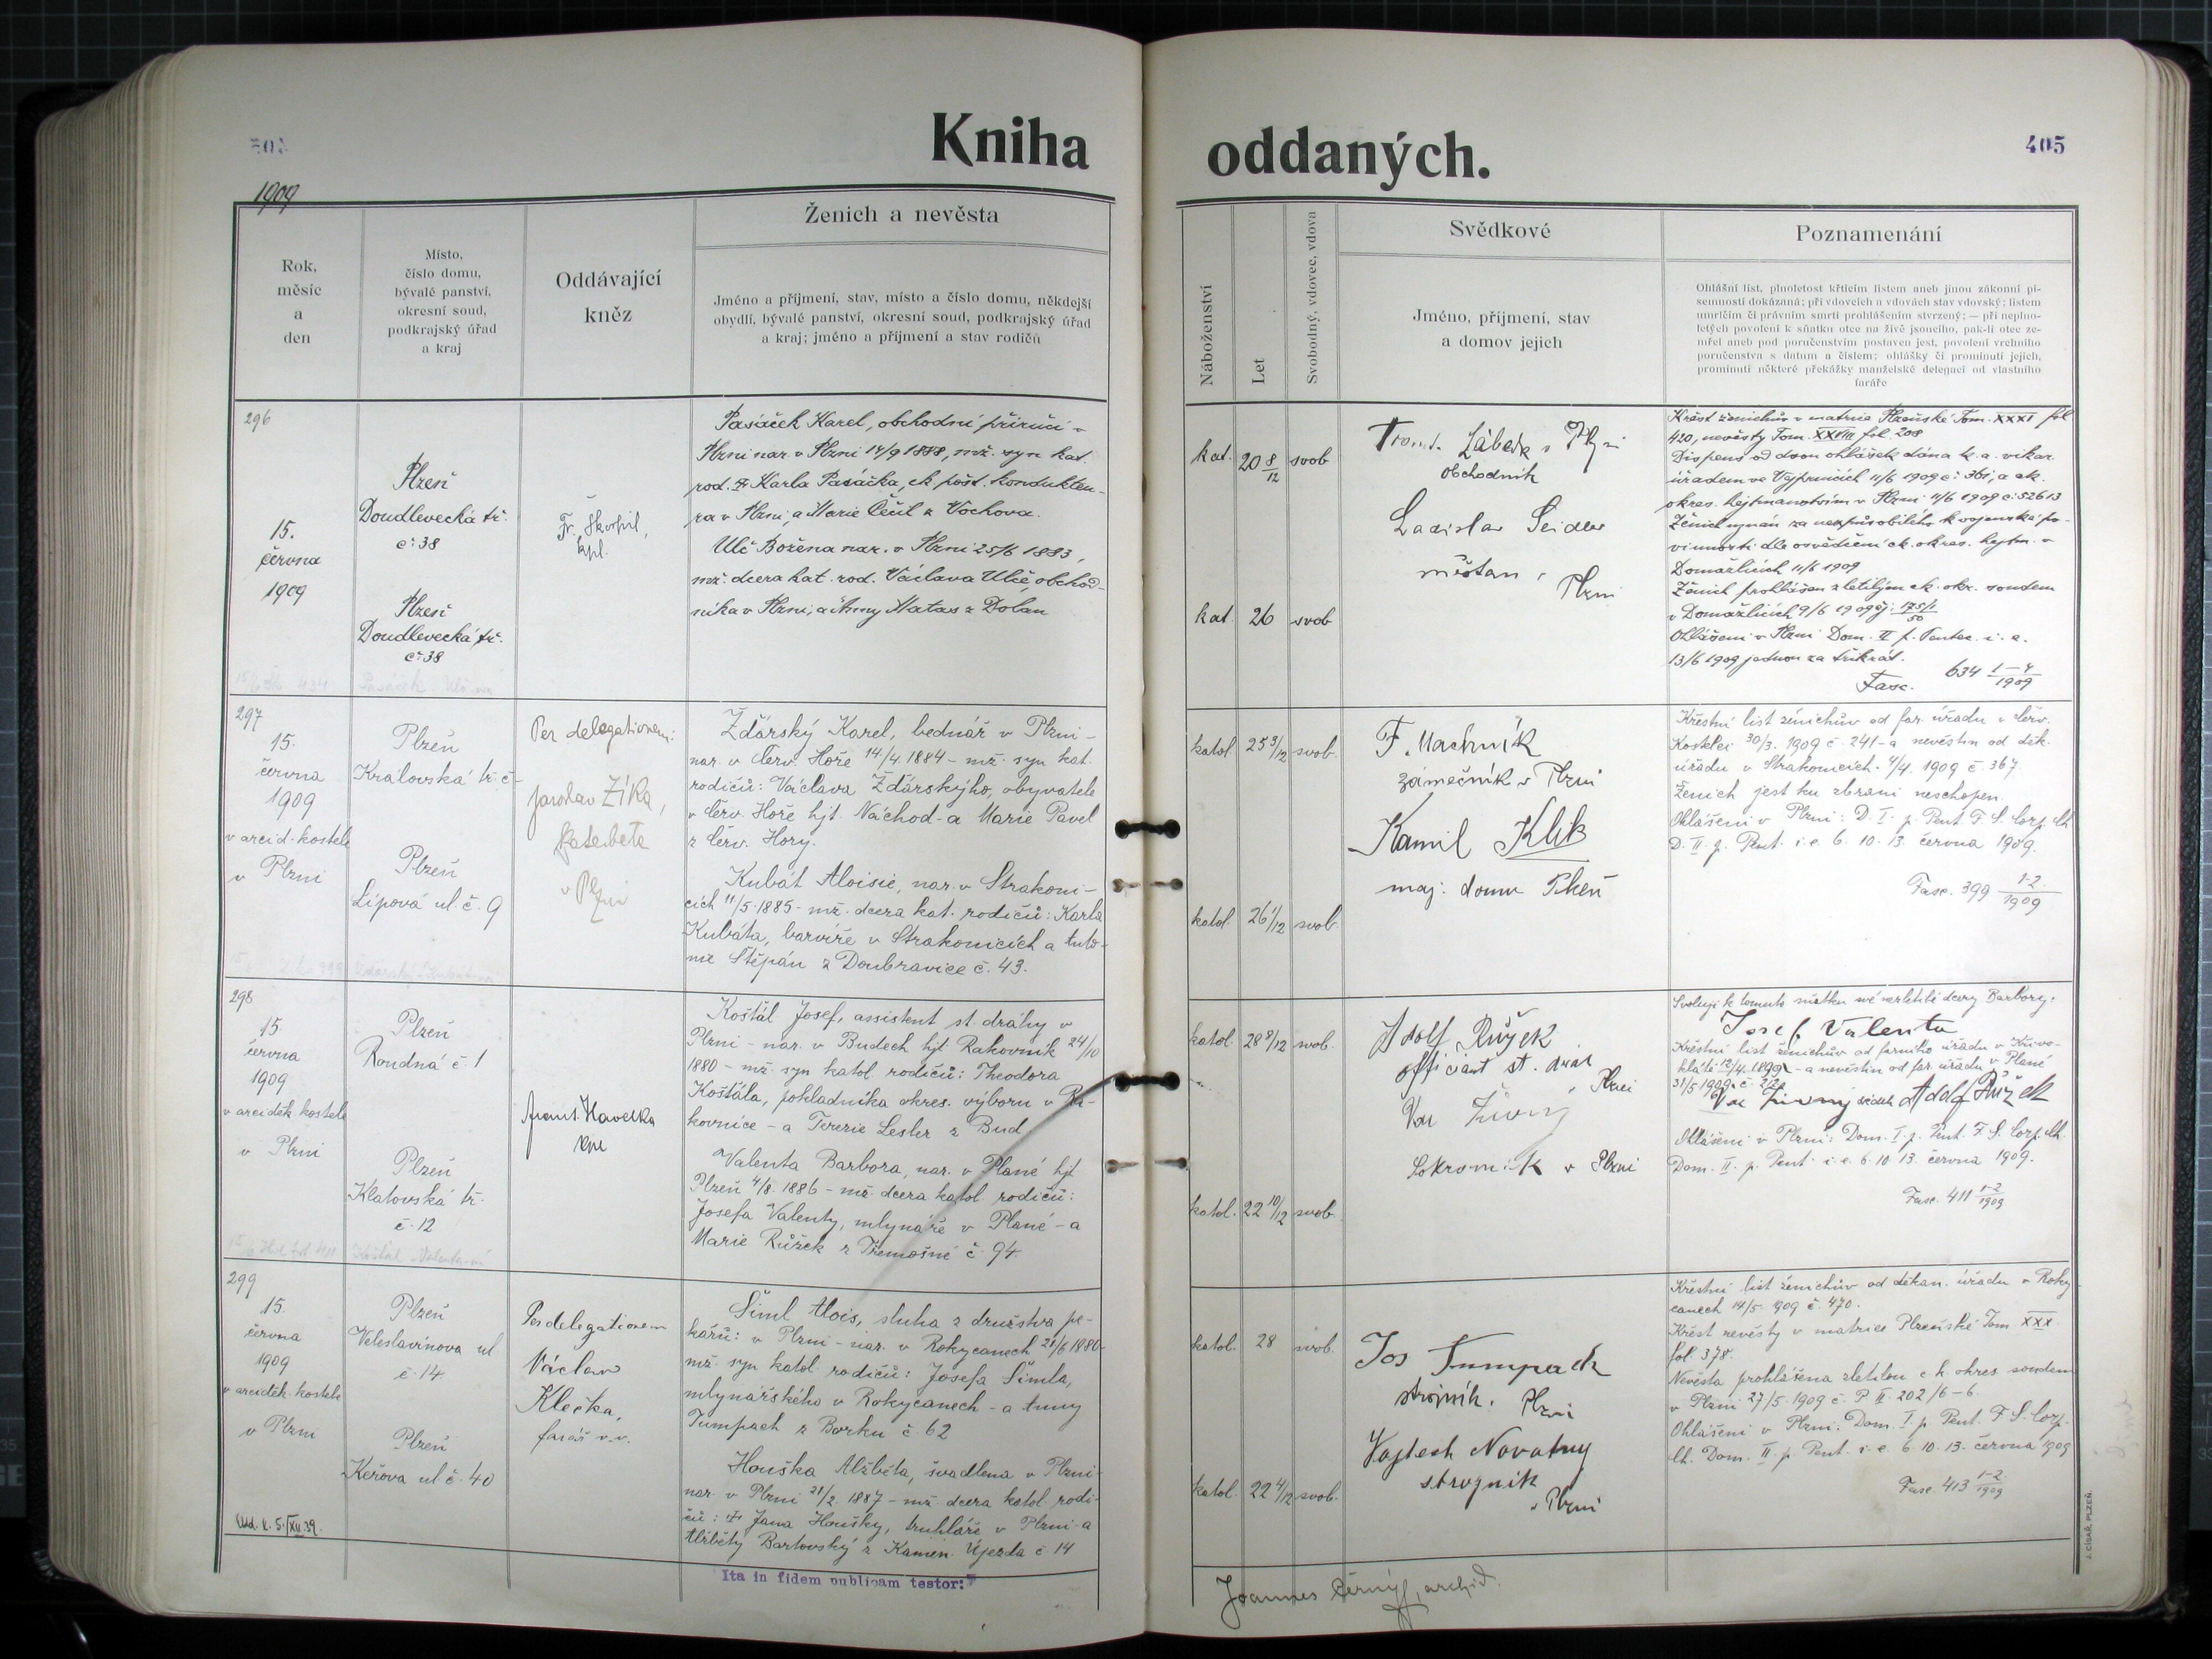 Kniha
oddaných.
405
1909
Rok,
měsíc
a
den
Místo,
číslo domu,
bývalé panství,
okresní soud,
podkrajský úřad
a kraj
Oddávající
kněz
Ženich a nevěsta
Jméno a příjmení, stav, místo a číslo domu, někdejší
obydlí, bývalé panství, okresní soud, podkrajský úřad
a kraj; jméno a příjmení a stav rodičů
Náboženství
Let
Svobodný, vdovec, vdova
Svědkové
Jméno, příjmení, stav
a domov jejich
Poznamenání
Ohlášní list, plnoletost křticím listem aneb jinou zákonní pí-
semností dokázaná; při vdovcích a vdovách stav vdovský; listem
umrlčím či právním smrti prohlášením stvrzený; — při neplno-
letých povolení k sňatku otce na živě jsoucího, pak-li otec ze-
mřel aneb pod poručenstvím postaven jest, povolení vrchního
poručenstva s datum a číslem; ohlášky či prominutí jejich,
prominutí některé překážky manželské delegací od vlastního
faráře
296
15.
června
1909
Plzeň
Doudlevecká tř.
č. 38
Plzeň
Doudlevecká tř.
č. 38
Fr. Škorpil,
kpl.
Pasáček Karel, obchodní příručí v
Plzni nar. v Plzni 14/9 1888, mž. syn kat.
rod. † Karla Pasáčka, ck. pošt. kondukteu-
ra v Plzni, a Marie Čečil z Vochova.
Ulč Božena nar. v Plzni 25/6 1883,
mž. dcera kat. rod. Václava Ulče, obchod-
níka v Plzni, a Anny Matas z Dolan
kat.
20 8/12
svob
kat.
26
svob
obchodník
Ladislav Seidler
měšťan v
Plzni
Křest ženichův v matrice Plzeňské Tom. XXXI fol
420, nevěsty Tom. XXVIII fol. 208
Dispens od dvou ohlášek dána k. a. vikar.
úřadem ve Vejprnicích 11/6 1909 č. 361, a ck.
okres. hejtmanstvím v Plzni 11/6 1909 č. 52613
Ženich uznán za nezpůsobilého k vojenské po-
vinnosti dle osvědčení ck. okres. hejtm. v
Domažlicích 11/6 1909
Ženich prohlášen zletilým ck. okr. soudem
v Domažlicích 9/6 1909
Ohlášeni v Plzni Dom. II p. Pentec. i. e.
13/6 1909 jednou za třikrát.
Fasc. 634 1-4/1909
297
15.
června
1909
v arcid. kostele
v Plzni
Plzeň
Královská tř. č.
Plzeň
Lípová ul. č. 9
Per delegationem:
Jaroslav Zíka,
katecheta
v Plzni
Žďárský Karel, bednář v Plzni -
nar. v Červ. Hoře 14/4. 1884 - mž. syn kat.
rodičů: Václava Žďárskýho, obyvatele
v Červ. Hoře hjt. Náchod - a Marie Pavel
z Červ. Hory.
Kubát Aloisie, nar. v Strakoni-
cích 11/5. 1885 - mž. dcera kat. rodičů: Karla
Kubáta, barvíře v Strakonicích a Anto-
nie Štěpán z Doubravice č. 43.
katol.
svob.
katol.
26 1/12
svob.
F. Machník
zámečník v Plzni
Kamil Klik
maj. domu Plzeň
Křestní list ženichův od far. úřadu v Červ.
Kostelci 30/3. 1909 č. 241 - a nevěstin od děk.
úřadu v Strakonicích. 4/4. 1909 č. 367
Ženich jest ku zbrani neschopen.
Ohlášeni v Plzni: D. I. p. Pent. F. S. Corp. Ch
D. II. p. Pent. i. e. 6. 10. 13. června 1909.
Fasc. 399 1-2./1909
298
15
června
1909
v arciděk. kostele
v Plzni
Plzeň
Roudná č. 1
Plzeň
Klatovská tř.
č. 12
Frant. Havelka
kpl
Košťál Josef, assistent st. dráhy v
Plzni - nar. v Budech hjt. Rakovník 24/10
1880 - mž. syn katol. rodičů: Theodora
Košťála, pokladníka okres. výboru v Ra-
kovníce - a Terezie Lesler z Bud
Valenta Barbora, nar. v Plané hjt.
Plzeň 4/8. 1886 - mž. dcera katol. rodičů:
Josefa Valenty, mlynáře v Plané - a
Marie Růžek z Třemošné č. 94.
katol.
svob.
katol.
22 10/12
svob.
Adolf Růžek
officiant st. drah
v Plzni
Sokromník v Plzni
Svoluji k tomuto sňatku své nezletilé dcery Barbory:
Josef Valenta
Křestní list ženichův od farního úřadu v Křivo-
klátě 12/4. 1899 - a nevěstin od far. úřadu v Plané
31/5 1909
svědek Adolf Růžek
Ohlášeni v Plzni: Dom. I. p. Pent. F. S. Corp. Ch.
Dom. II. p. Pent. i. e. 6. 10. 13. června 1909.
Fasc. 411 1-2/1909
299
15.
června
1909
v arciděk. kostele
v Plzni
Plzeň
Veleslavínova ul
č. 14
Plzeň
Keřova ul č. 40
Per delegationem
Václav
Klečka,
farář v. v.
Šiml Alois, sluha z družstva pe-
kařů: v Plzni - nar. v Rokycanech 21/6 1880 -
mž. syn katol. rodičů: Josefa Šimla,
mlynářského v Rokycanech - a Anny
Tumpach z Borku č. 62
Houška Alžběta, švadlena v Plzni -
nar. v Plzni 21/2. 1887 - mž. dcera katol. rodi-
čů: † Jana Houšky, truhláře v Plzni - a
Alžběty Bartovský z Kamen. Újezda č. 14
katol.
28
svob.
katol.
22 4/12
svob.
Jos Tumpach
strojník. Plzni
Vojtech Novotny
strojnik
v Plzni
Křestní list ženichův od děkan. úřadu v Roky-
canech 14/5. 1909 č. 470.
Křest nevěsty v matrice Plzeňské Tom XXX
fol. 378.
Nevěsta prohlášena zletilou c. k. okres soudem
v Plzni 27/5. 1909 č. P II 202/6-6.
Ohlášeni v Plzni: Dom. I. p. Pent. F. S. Corp.
Ch. Dom. II. p. Pent. i. e. 6. 10. 13. června 1909
Fasc. 413 1-2./1909
Ita in fidem publicam testor:
Joannes Černý, archid.
J. CÍSAŘ, PLZEŇ.